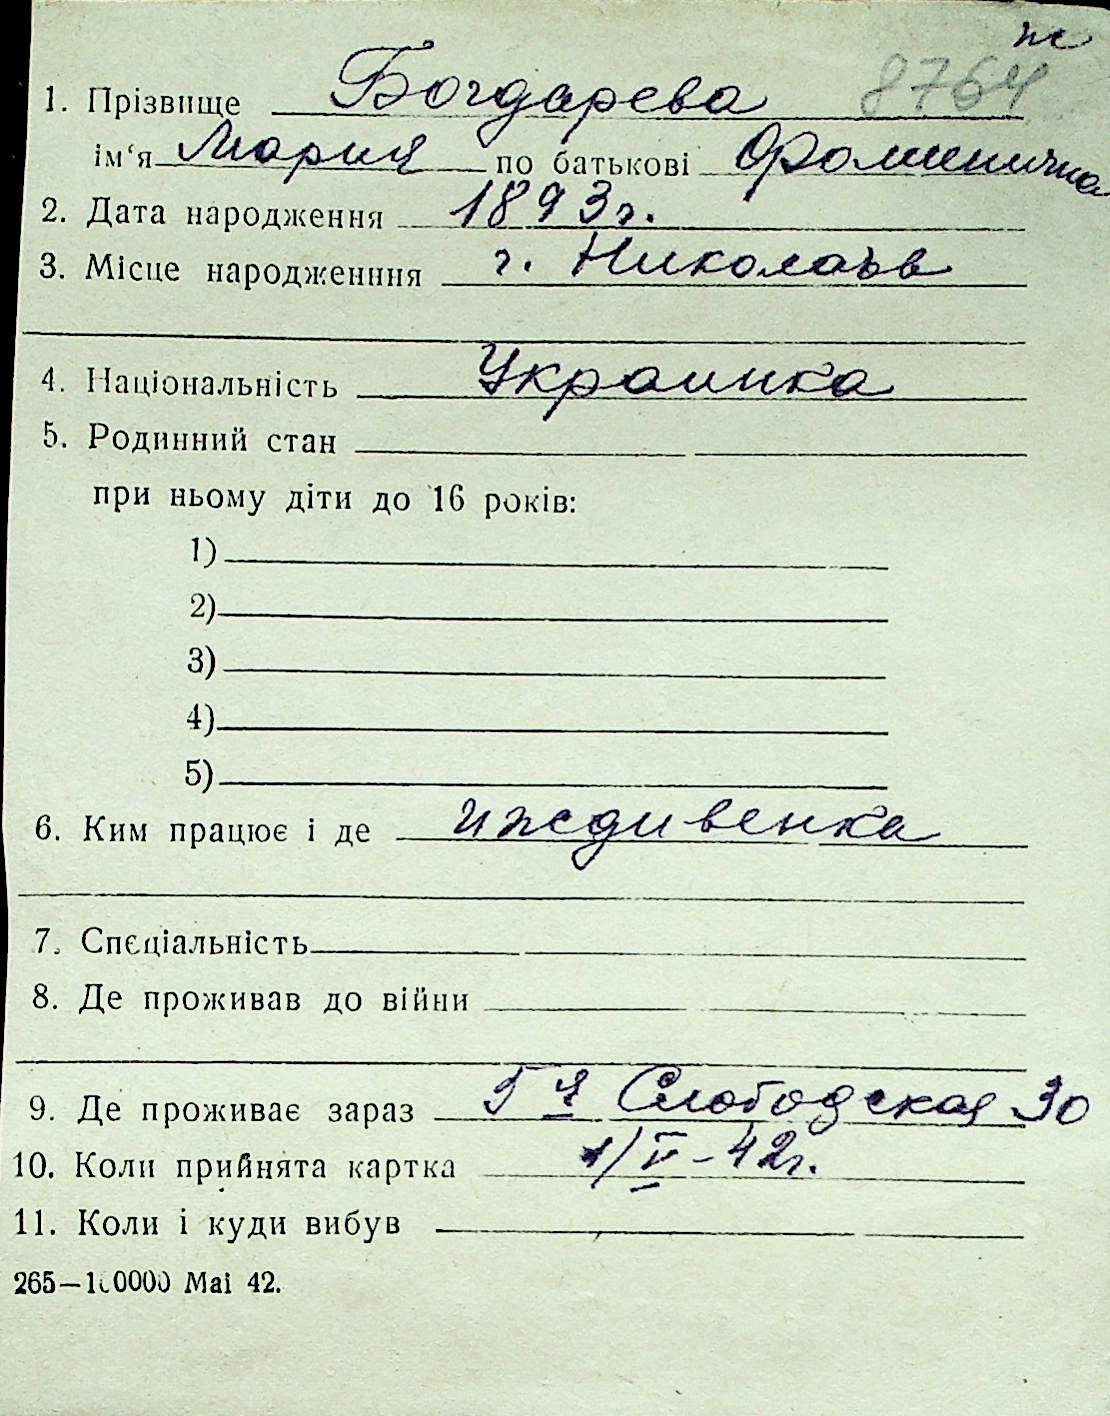 ж
8764
1. Прізвище Богдарева
ім‘я Мария по батькові Фоминична
2. Дата народження 1893г.
3. Місце народженння г. Николаъв
4. Національність Украинка
5. Родинний стан
при ньому діти до 16 років:
1)
2)
3)
4)
5)
6. Ким працює і де иждивенка
7. Спеціальність
8. Де проживав до війни
9. Де проживає зараз 5 я Слободская 30
10. Коли прийнята картка 1/V – 42г.
11. Коли і куди вибув
265—100000 Mai 42.